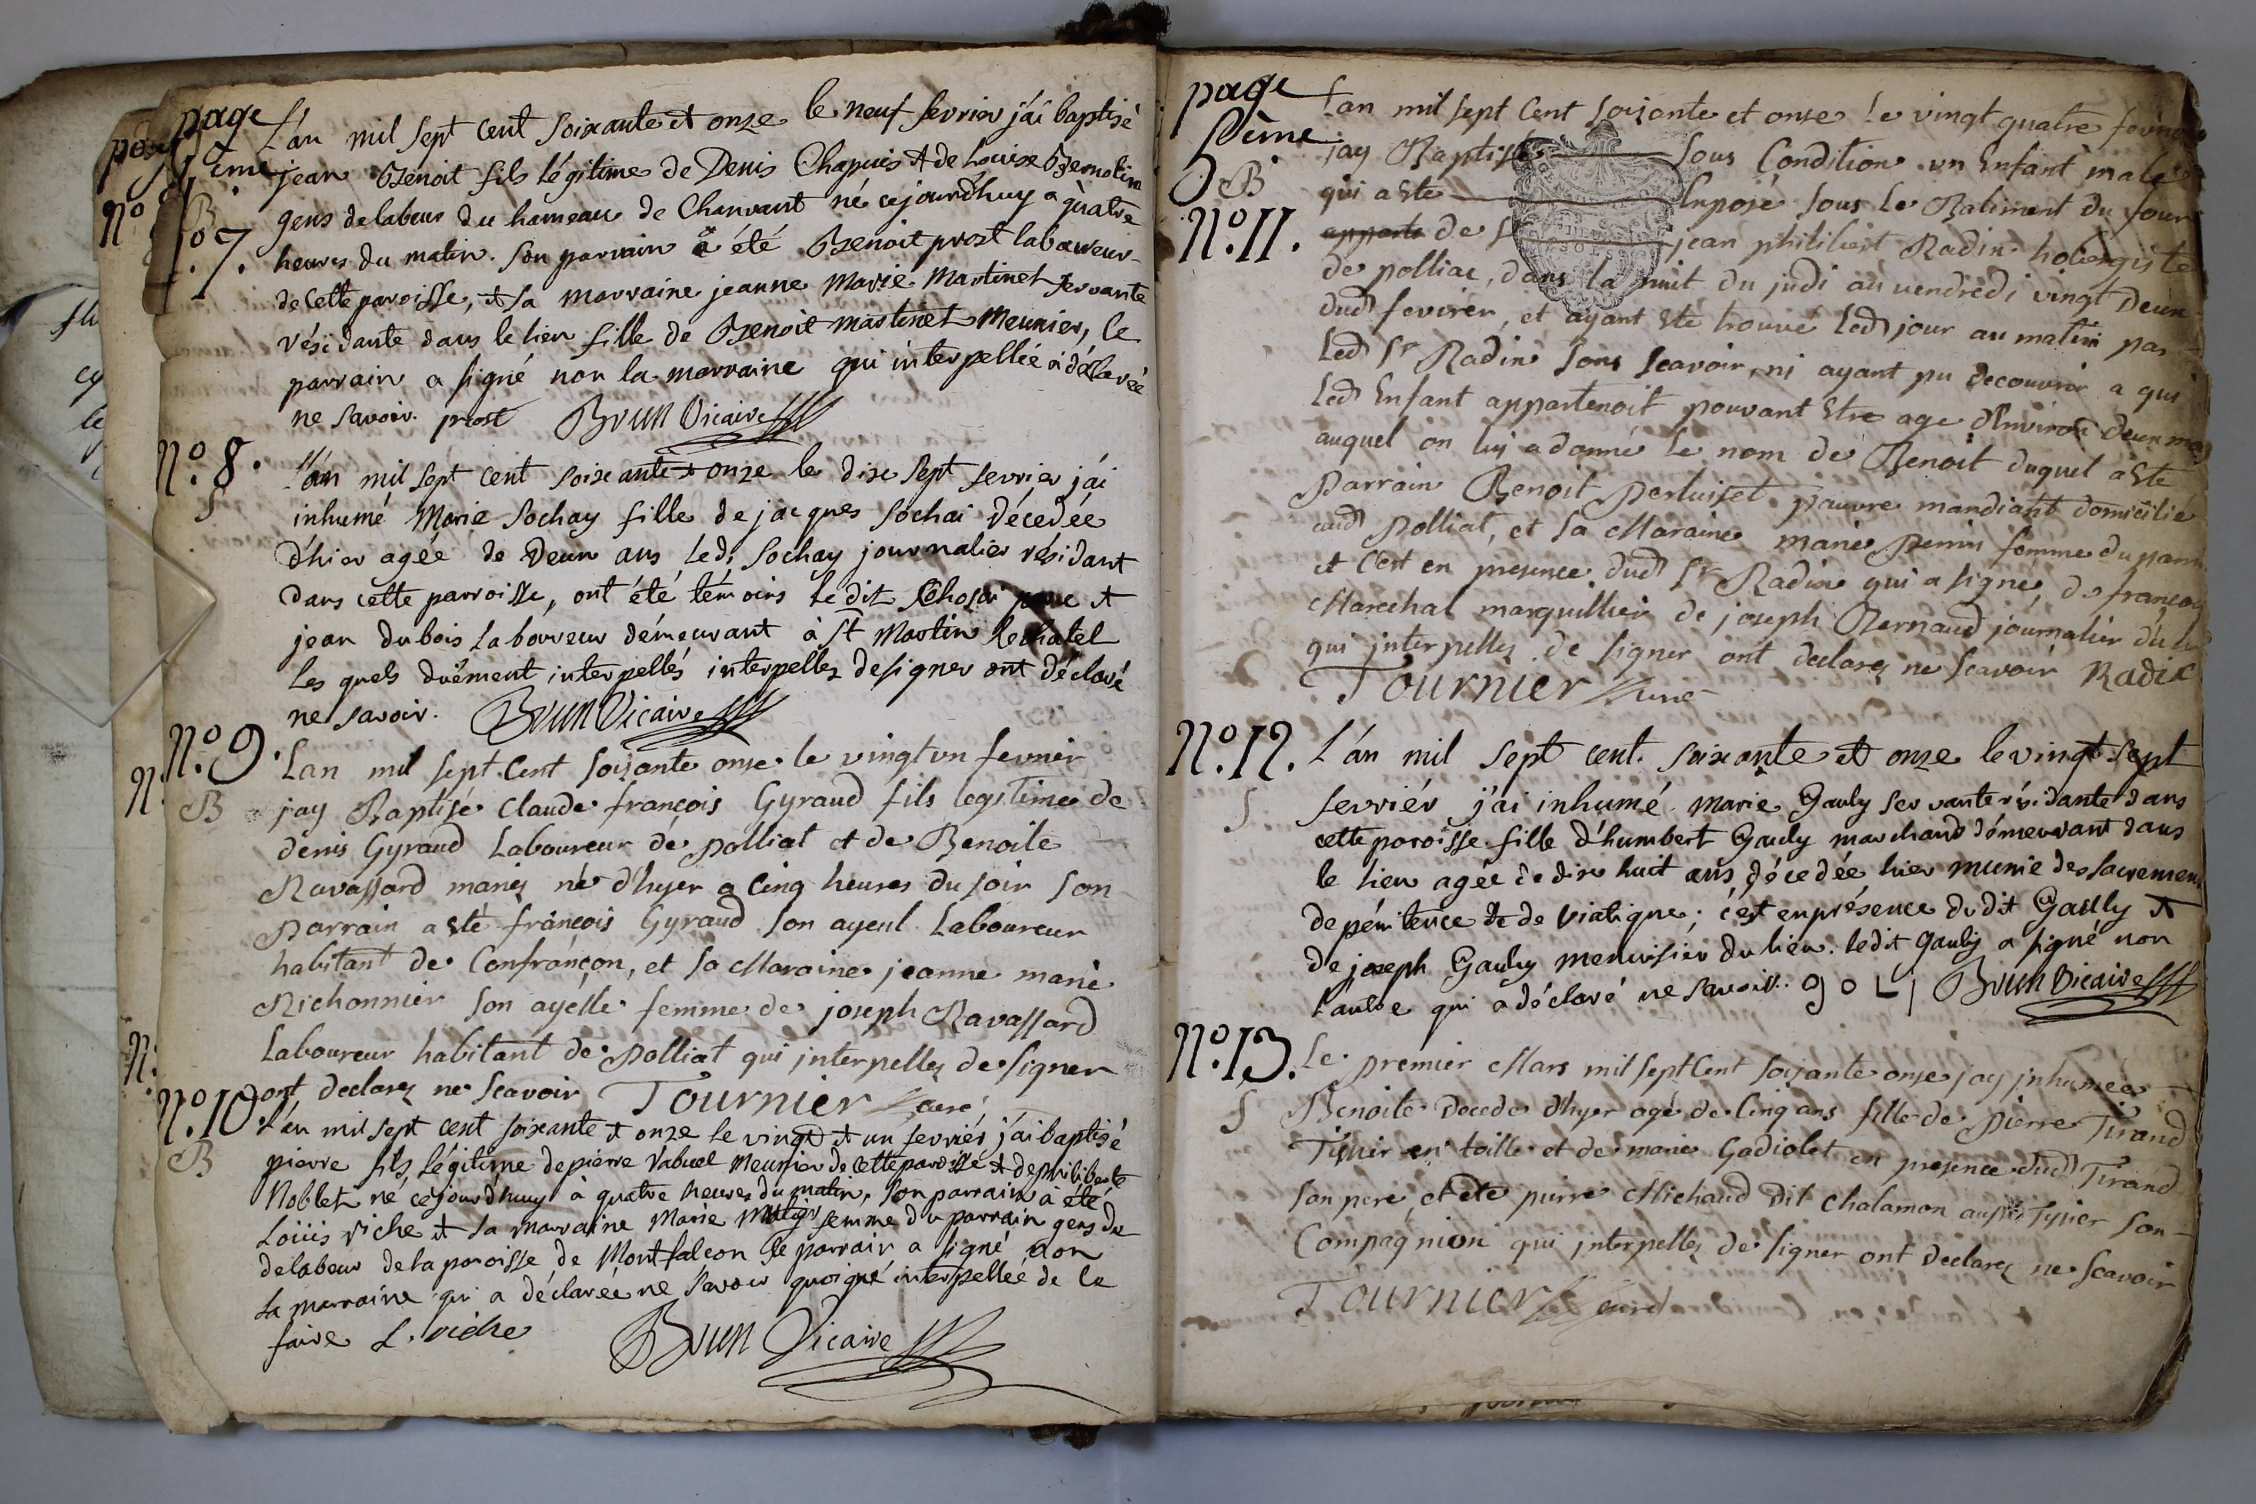 page
4ème
B
N.º 7.
L'an mil sept cent soixante et onze le neuf fevrier j'ai baptisé
jean Benoit fils légitime de Denis Chapuis et de Louise Bernolin
gens de labeur du hameau de Charvant né cejourdhuy a quatre
heures du matin. son parrain a été Benoit prost laboureur
de cette paroisse, et sa marraine jeanne Marie Martinet servante
résidante dans le lieu fille de Benoit martinet Meunier, le
parrain a signé non la marraine qui interpellée a déclaréé
ne savoir. prost Brun Vicaire
N.º 8.
S
L'an mil sept cent soixante et onze le dix sept fevrier j'ai
inhumé Marie Sochay fille de jacques Sochai décédée
d'hier agée de Deux ans led. Sochay journalier résidant
dans cette parroisse, ont été témoins le dit et
jean dubois laboureur démeurant à St Martin lechatel
les quels duëment interpellés interpellez de signer ont déclaré
ne savoir. Brun Vicaire
N.º 9.
B
Lan mil sept Cent soixante onse le vingt un fevrier
jay Baptisé Claude françois Gyraud fils legitime de
denis Gyraud Laboureur de Polliat et de Benoite
Ravassard mariez né d'hyer a Cinq heures du soir son
Parrain a esté françois Gyraud son ayeul Laboureur
habitant de Confrançon, et sa Maraine jeanne marie
Richonnier son ayelle femme de joseph Ravassard
Laboureur habitant de Polliat qui interpellez de signer
ont declarez ne scavoir Tournier curé
N.º 10.
B
L'an mil sept cent soixante et onze le vingt et un fevrier j'ai baptisé
pierre fils légitime de pierre Vabuel Meunier de cette paroisse et de philiberte
Noblet né cejourd'huy à quatre heures du matin, son parrain à été
Loüis Viche et sa marraine Marie femme du parrain gens du
de labeur de la paroisse de Montfalcon le parrain a signé non
la marraine qui a déclarée ne savoir quoique interpellée de le
faire L. viche Brun Vicaire
page
5ème
B
N.º 11.
Lan mil sept Cent soixante et onse le vingt quatre fevrier
jay Baptisé sous Condition un Enfant male
qui a este Exposé sous le Batiment du four
de Sr jean philibert Radix hobergiste
de polliat, dans la nuit du judi au vendredi vingt Deux
dud fevrier, et ayant esté trouvé led jour au matin par
led Sr Radix sans scavoir, ni ayant pu decouvrir a qui
led Enfant appartenoit pouvant Etre age d'Environ deux mois
auquel on luy a donné le nom de Benoit duquel a Este
Parrain Benoit Pertuiset pauvre mandiant domicilié
aud Polliat, et sa Maraine marie Perrin femme du parrain
et C'est en presence dud Sr Radix qui a signé, de françois
Marechal marguillier de joseph Bernaud journalier du lieu
qui interpellez de signer ont declarez ne scavoir Radix
Tournier curé
N.º 12.
S
L'an mil sept cent soixante et onze le vingt sept
fevriér j'ai inhumé marie Gauly servante résidante dans
cette paroisse fille d'humbert Gauly marchand démeurant dans
le lieu agée de dix huit ans décedée hier munie des sacremens
de pénitence et de viatique; c'est en présence du dit Gaully et
de joseph Gauly menuisier du lieu. ledit Gauly a signé non
l'autre qui a déclaré ne savoir. goli Brun Vicaire
N.º 13.
S
Le premier Mars mil sept Cent soixante onse jay inhumée
Benoite decede d'hyer agé de Cinq ans fille de Pierre Tirand
Tissier en toille et de marie Gadiolet en presence dud Tirand
son pere, et de pierre Michaud dit Chalamon aussi Tissier son
Compagnion qui interpellez de signer ont declarez ne scavoir
Tournier curé